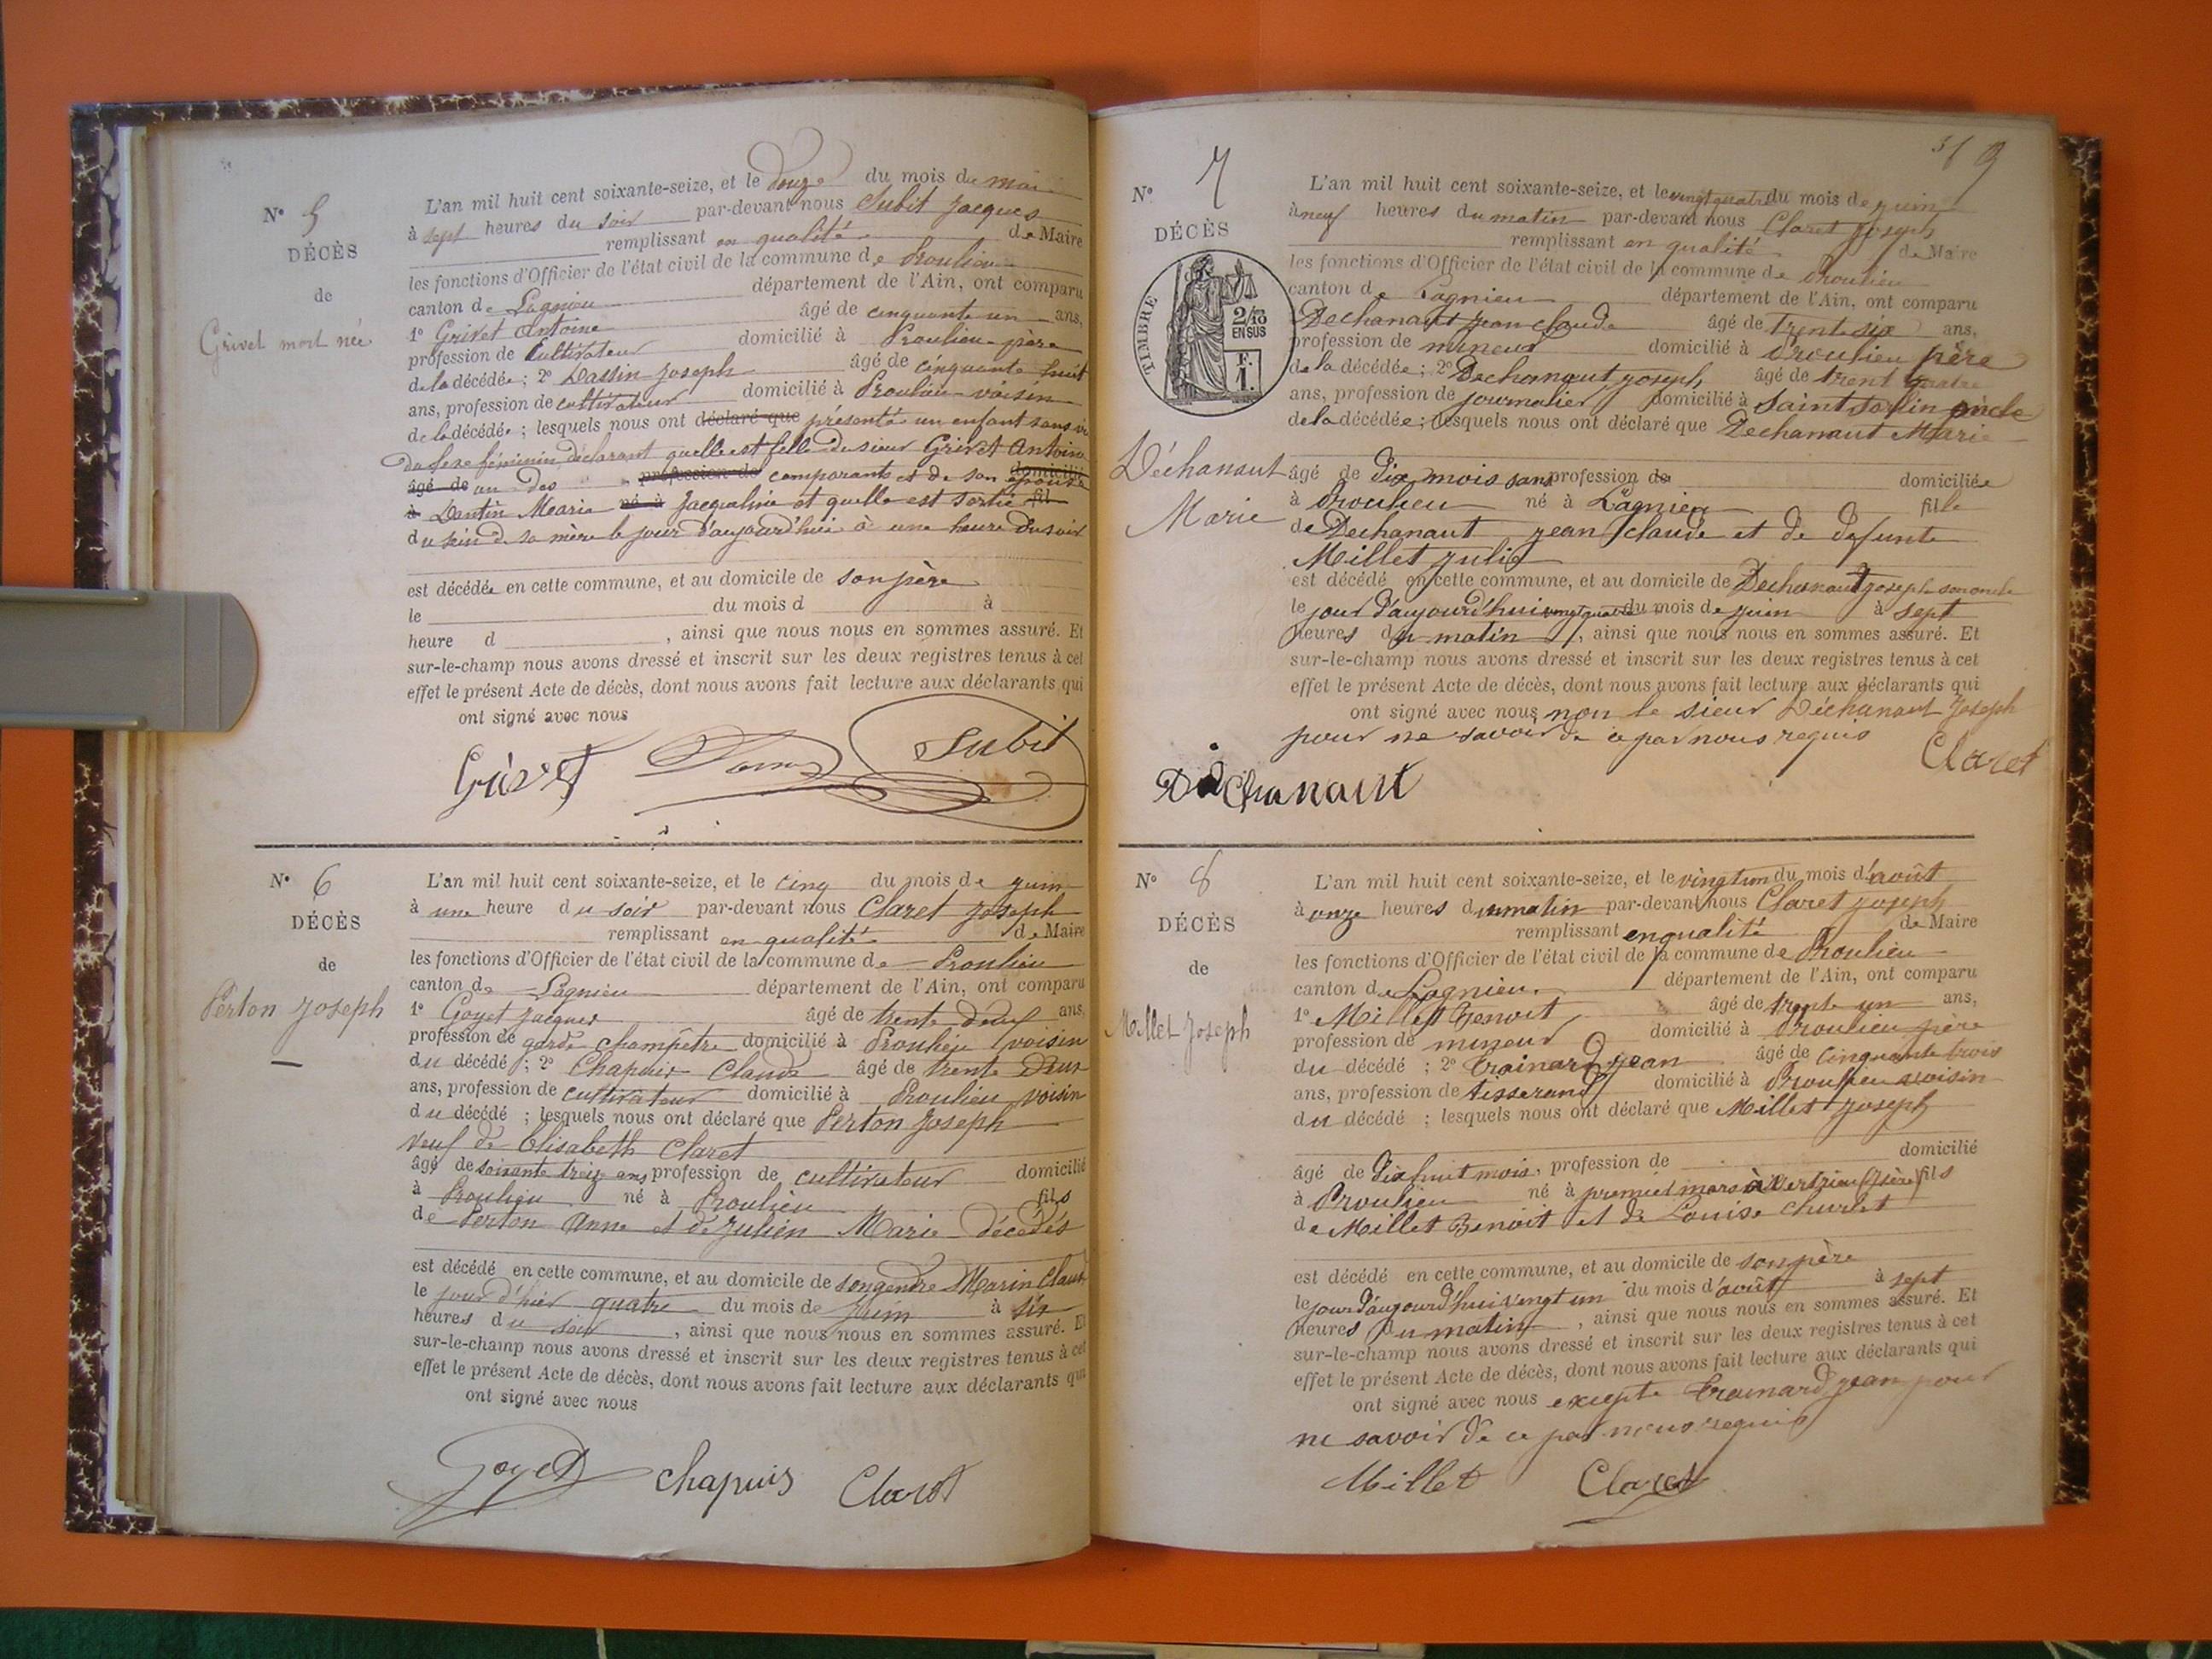 N° 5
DÉCÈS
de
Grivet mort née
L'an mil huit cent soixante-seize, et le douze du mois de mai
à sept heures du soir par-devant nous Subit Jacques
remplissant en qualité de Maire
les fonctions d'Officier de l'état civil de la commune de Proulieu
canton de Lagnieu département de l'Ain, ont comparu
1° Grivet Antoine âgé de cinquante un ans,
profession de Cultivateur domicilié à Proulieu père
de la décédée; 2° Dassin Joseph âgé de cinquante huit
ans, profession de cultivateur domicilié à Proulieu voisin
de la décédée; lesquels nous ont déclaré que présenté un enfant sans vie
du sexe féminin, déclarant quelle est fille du sieur Grivet Antoine
âgé de un des profession de comparants et de son domicilié épouse
à Dantin Marie né à Jacqueline et quelle est sortie fil
du sein de sa mère le jour d'aujourd'hui à une heure du soir
est décédée en cette commune, et au domicile de son père
le du mois d à
heure d , ainsi que nous nous en sommes assuré. Et
sur-le-champ nous avons dressé et inscrit sur les deux registres tenus à cet
effet le présent Acte de décès, dont nous avons fait lecture aux déclarants qui
ont signé avec nous
Grivet Subit
N° 6
DÉCÈS
de
Perton Joseph
L'an mil huit cent soixante-seize, et le cinq du mois de juin
à une heure du soir par-devant nous Claret Joseph
remplissant en qualité de Maire
les fonctions d'Officier de l'état civil de la commune de Proulieu
canton de Lagnieu département de l'Ain, ont comparu
1° Goyet Jacques âgé de trente deux ans,
profession de garde champêtre domicilié à Proulieu voisin
du décédé; 2° Chapuis Claude âgé de trente deux
ans, profession de cultivateur domicilié à Proulieu voisin
du décédé; lesquels nous ont déclaré que Perton Joseph
veuf de Elisabeth Claret
âgé de soixante treize ans profession de cultivateur domicilié
à Proulieu né à Proulieu fils
de Perton Anne et de Julien Marie décédés
est décédé en cette commune, et au domicile de son gendre Marin Claude
le jour d'hier quatre du mois de juin à six
heures du soir, ainsi que nous nous en sommes assuré. Et
sur-le-champ nous avons dressé et inscrit sur les deux registres tenus à cet
effet le présent Acte de décès, dont nous avons fait lecture aux déclarants qui
ont signé avec nous
Goyet Chapuis Claret
519
N° 7
DÉCÈS
TIMBRE
2/10
EN SUS
F.
1.
Déchanaut
Marie
L'an mil huit cent soixante-seize, et le vingt quatre du mois de juin
à neuf heures du matin par-devant nous Claret Joseph
remplissant en qualité de Maire
les fonctions d'Officier de l'état civil de la commune de Proulieu
canton de Lagnieu département de l'Ain, ont comparu
Dechanaut Jean Claude âgé de trente six ans,
profession de mineur domicilié à Proulieu père
de la décédée; 2° Dechanaut Joseph âgé de trent quatre
ans, profession de journalier domicilié à Saint Sorlin oncle
de la décédée; lesquels nous ont déclaré que Dechanaut Marie
âgé de dix mois sans profession de domiciliée
à Proulieu né à Lagnieu fille
de Dechanaut Jean Claude et de defunte
Millet Julie
est décédé en cette commune, et au domicile de Dechanaut Joseph son oncle
le jour d'aujourd'hui vingt quatre du mois de juin à sept
heures du matin, ainsi que nous nous en sommes assuré. Et
sur-le-champ nous avons dressé et inscrit sur les deux registres tenus à cet
effet le présent Acte de décès, dont nous avons fait lecture aux déclarants qui
ont signé avec nous, non le sieur Déchanaut Joseph
pour ne savoir de ce par nous requis
Claret
Déchanaut
N° 8
DÉCÈS
de
Millet Joseph
L'an mil huit cent soixante-seize, et le vingt un du mois d'août
à onze heures du matin par-devant nous Claret Joseph
remplissant en qualité de Maire
les fonctions d'Officier de l'état civil de la commune de Proulieu
canton de Lagnieu département de l'Ain, ont comparu
1° Millet Benoit âgé de trente un ans,
profession de mineur domicilié à Proulieu père
du décédé; 2° Trainard Jean âgé de cinquante trois
ans, profession de tisserand domicilié à Proulieu voisin
du décédé; lesquels nous ont déclaré que Millet Joseph
domicilié
âgé de dix huit mois, profession de
à Proulieu né à premier mars à Vertrieu (Isère) fils
de Millet Benoit et de Louise Churlet
est décédé en cette commune, et au domicile de son père
le jour d'aujourd'hui vingt un du mois d'août à sept
heures du matin, ainsi que nous nous en sommes assuré. Et
sur-le-champ nous avons dressé et inscrit sur les deux registres tenus à cet
effet le présent Acte de décès, dont nous avons fait lecture aux déclarants qui
ont signé avec nous excepté Trainard Jean pour
ne savoir de ce par nous requis
Millet Claret